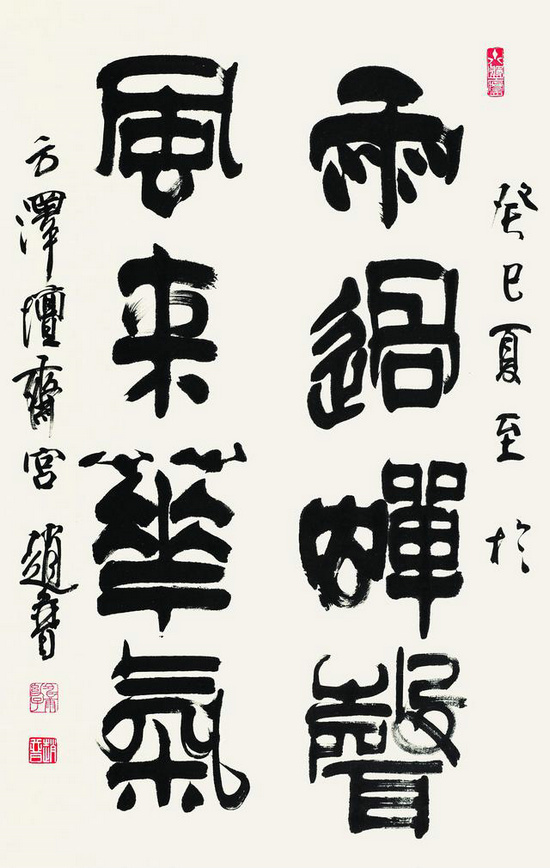 癸巳夏至於
雨過蟬聲
風来華氣
方澤壇齋宮 趙普